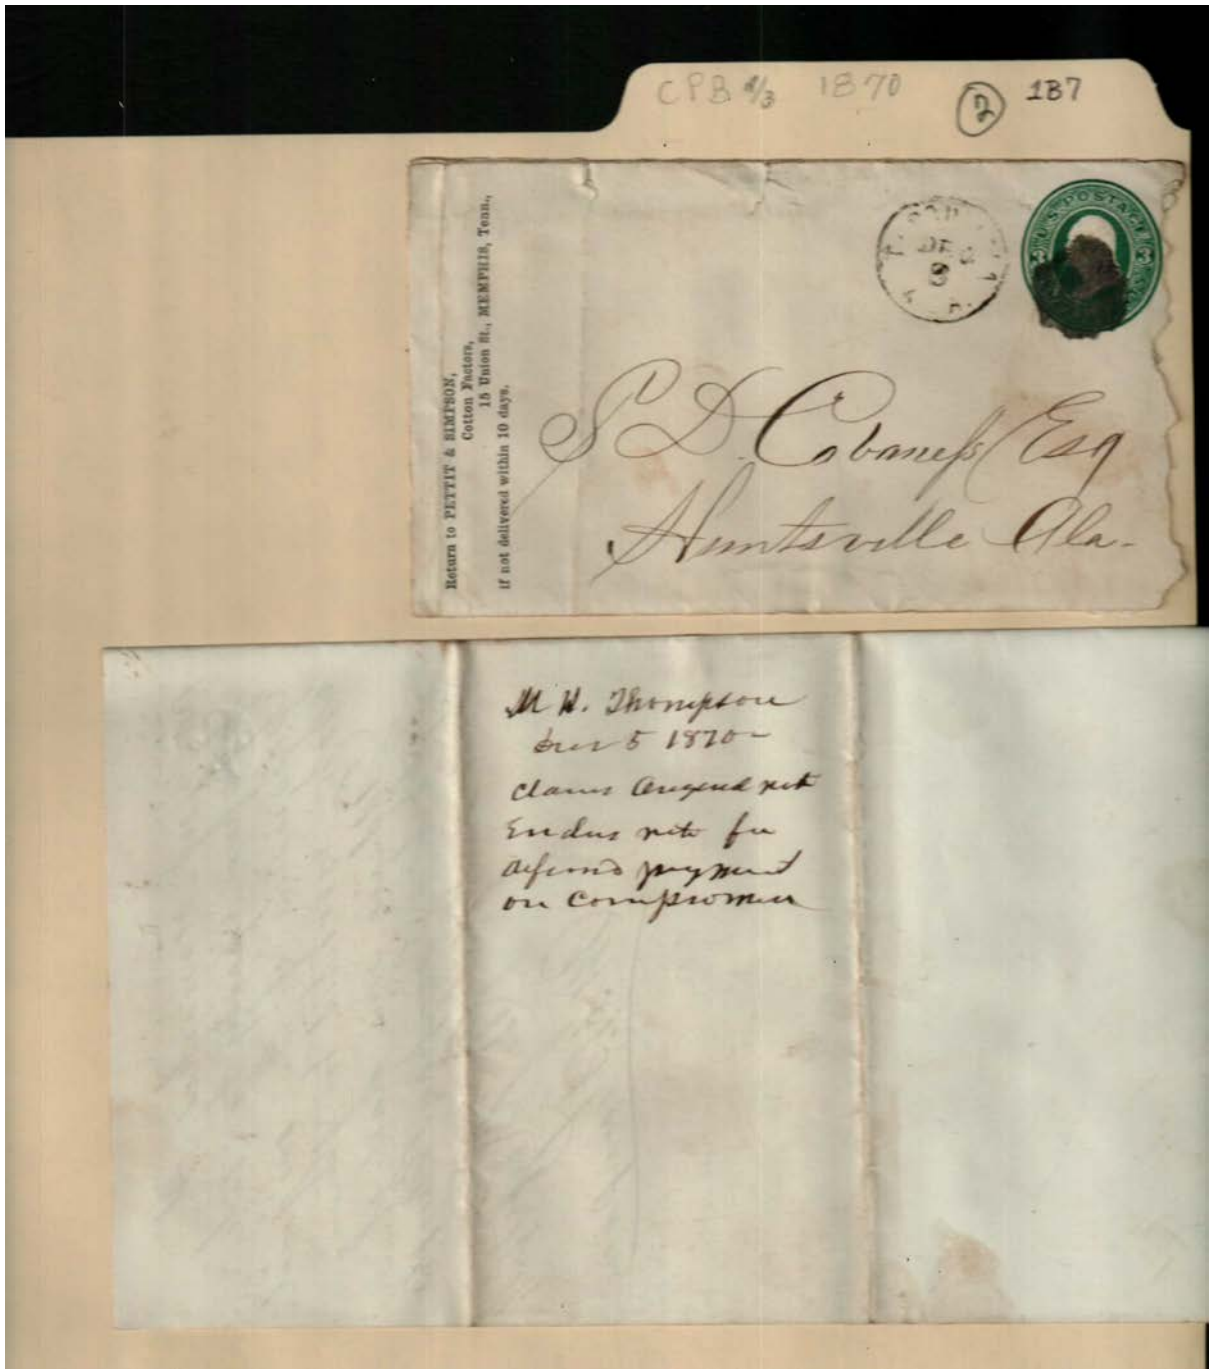 CPB 2/3 1870 2 1B7
Return to PETTIT & SIMPSON,
Cotton Factors,
15 Union St., MEMPHIS, Tenn.,
if not delivered within 10 days.
U.S. POSTAGE
DEC
8
S D Cabaneſs Esq
Huntsville Ala-
M H. Thompson
5 1870-
claims
Endus note for
payment
on compromise